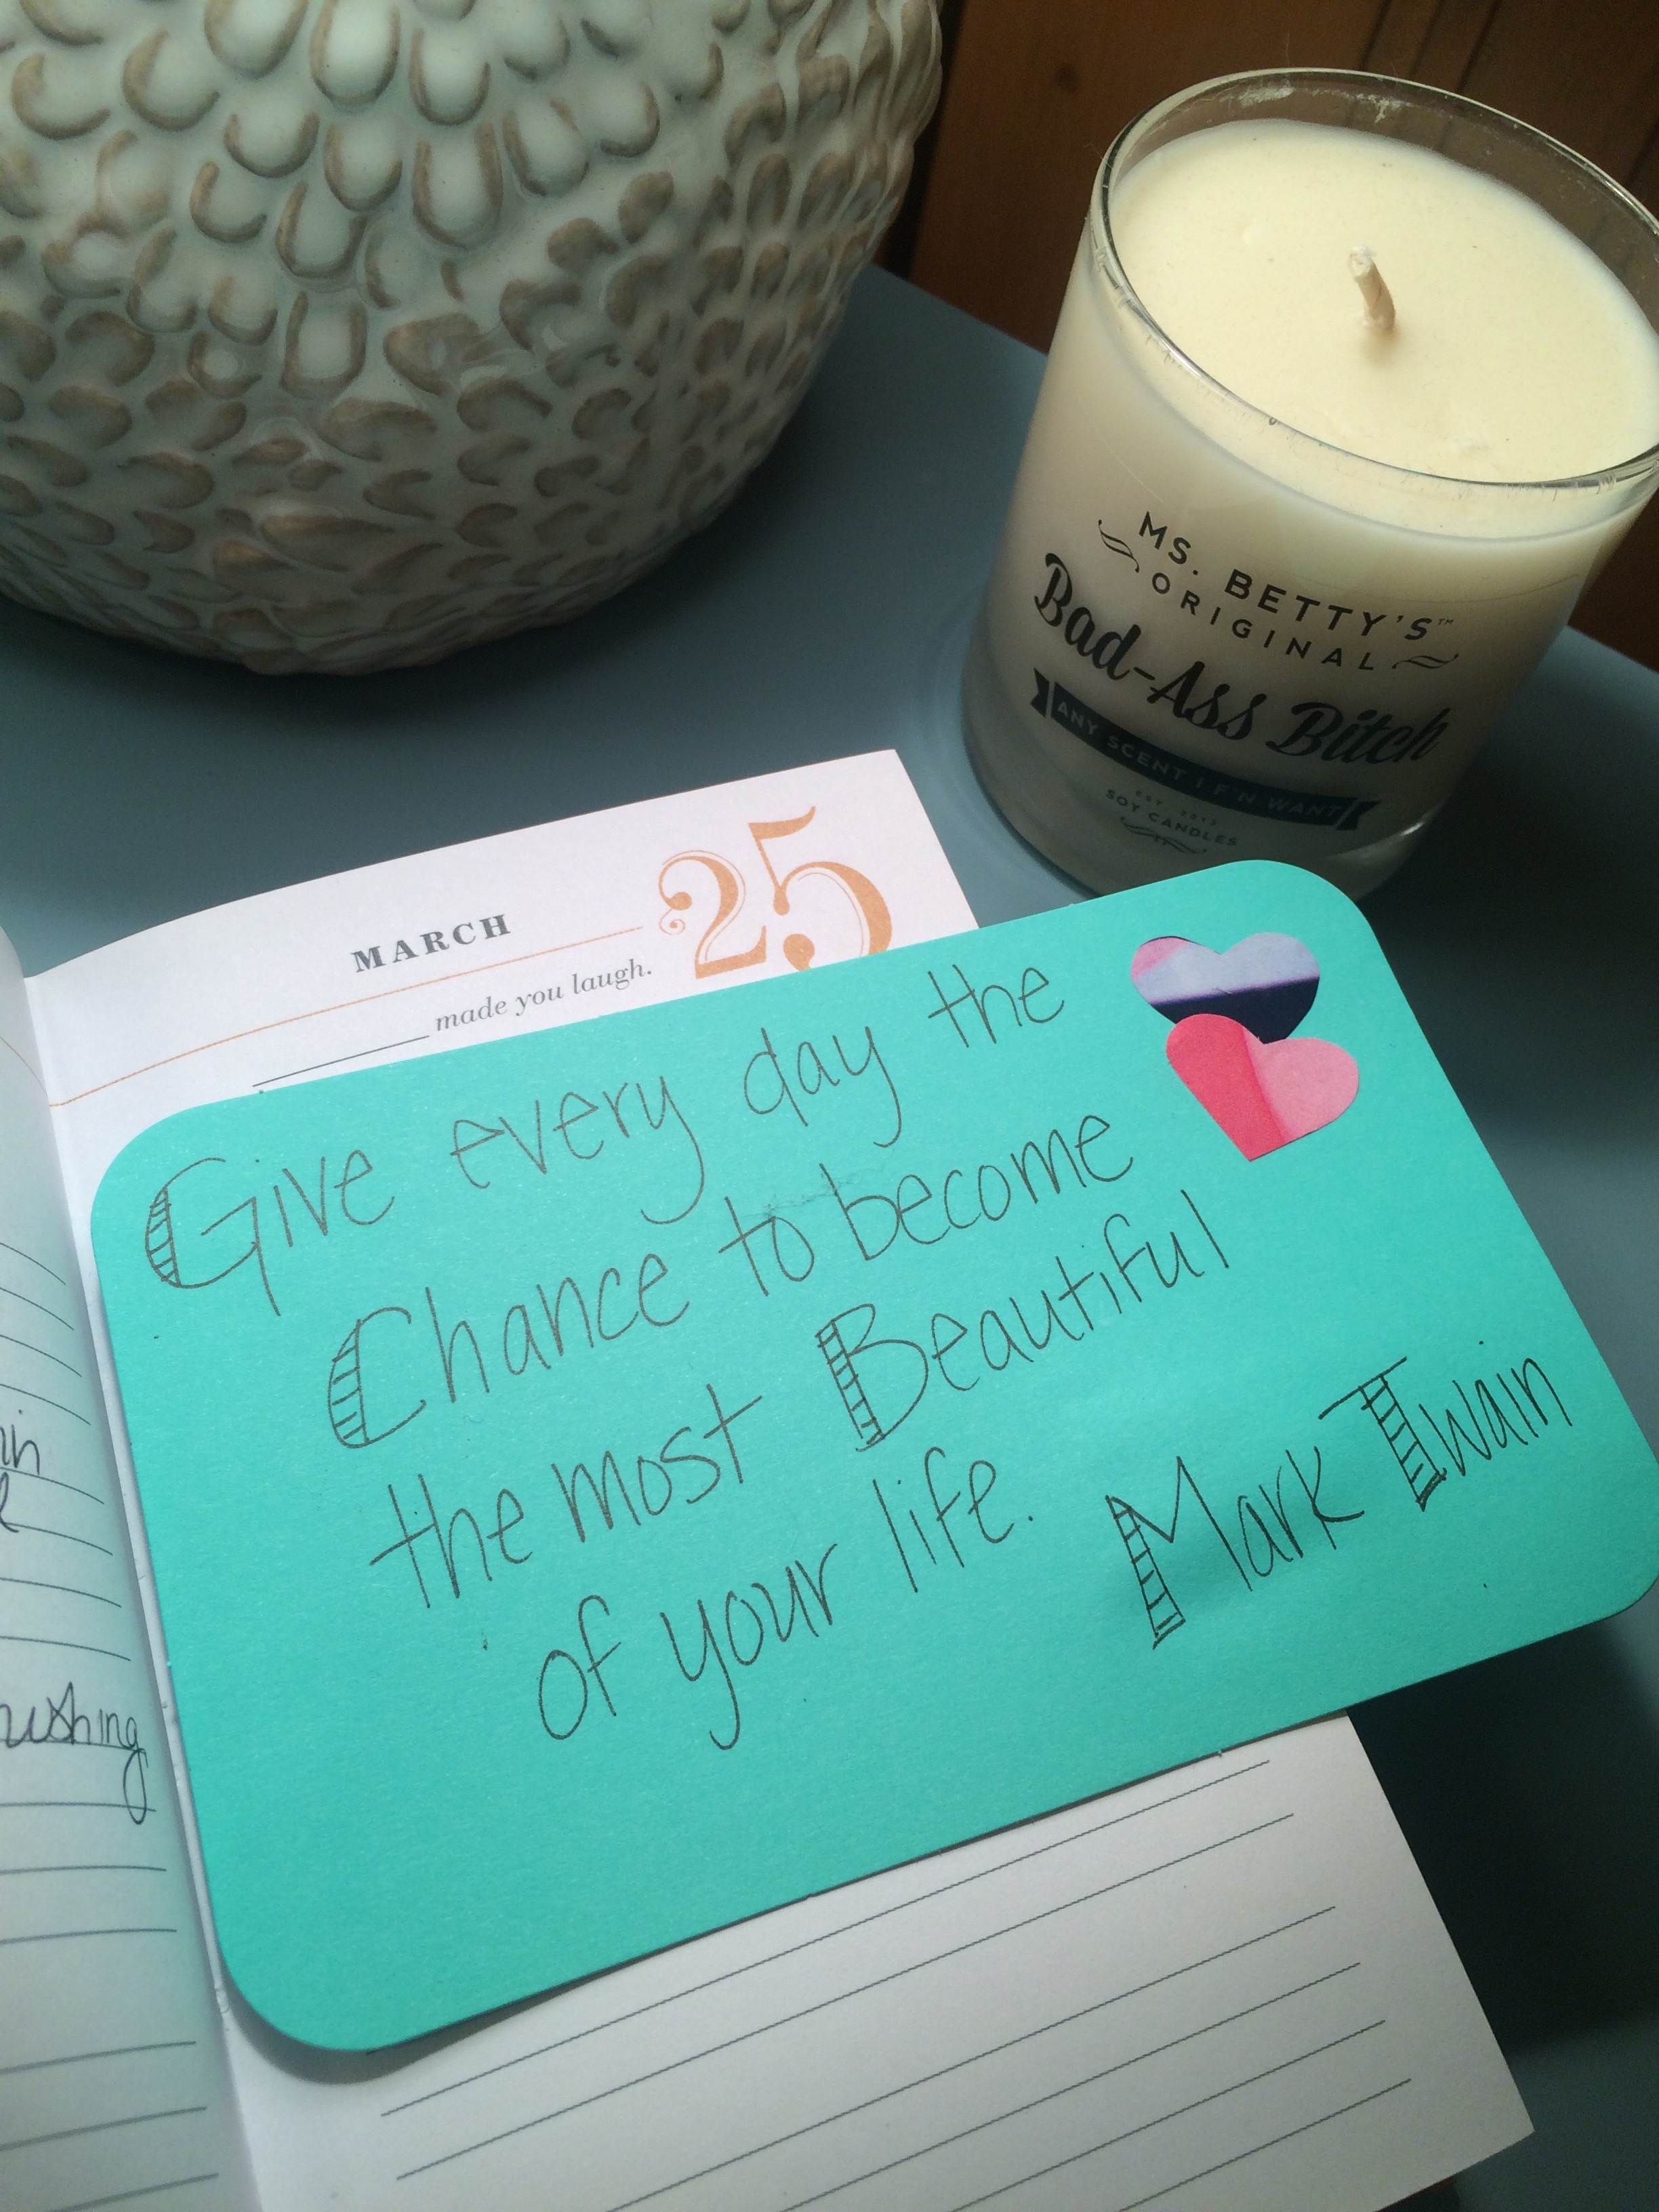 MS. BETTY'S™
ORIGINAL
Bad-Ass Bitch
ANY SCENT I F'N WANT
SOY CANDLES
MARCH 25
made you laugh.
Give every day the
Chance to become
the most Beautiful
of your life. Mark Twain